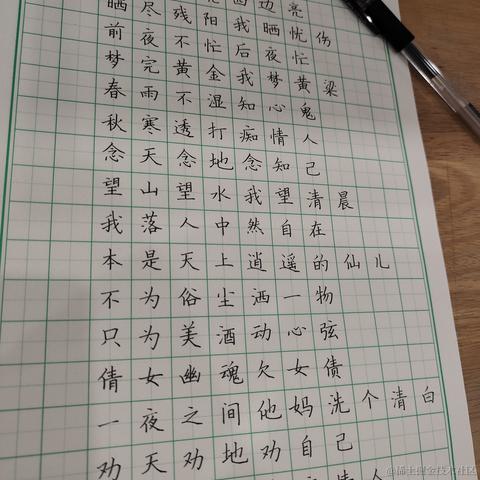 晒尽残阳我晒忧伤
前夜不忙后夜忙
梦完黄金我梦黄梁
春雨不湿知心鬼
秋寒透打痴情人
念天念地念知己
望山望水我望清晨
我落人中然自在
本是天上逍遥的仙儿
不为俗尘洒一物
只为美酒动心弦
倩女幽魂欠女债
一夜之间他妈洗个清白
劝天劝地劝自己
@稀土掘金技术社区